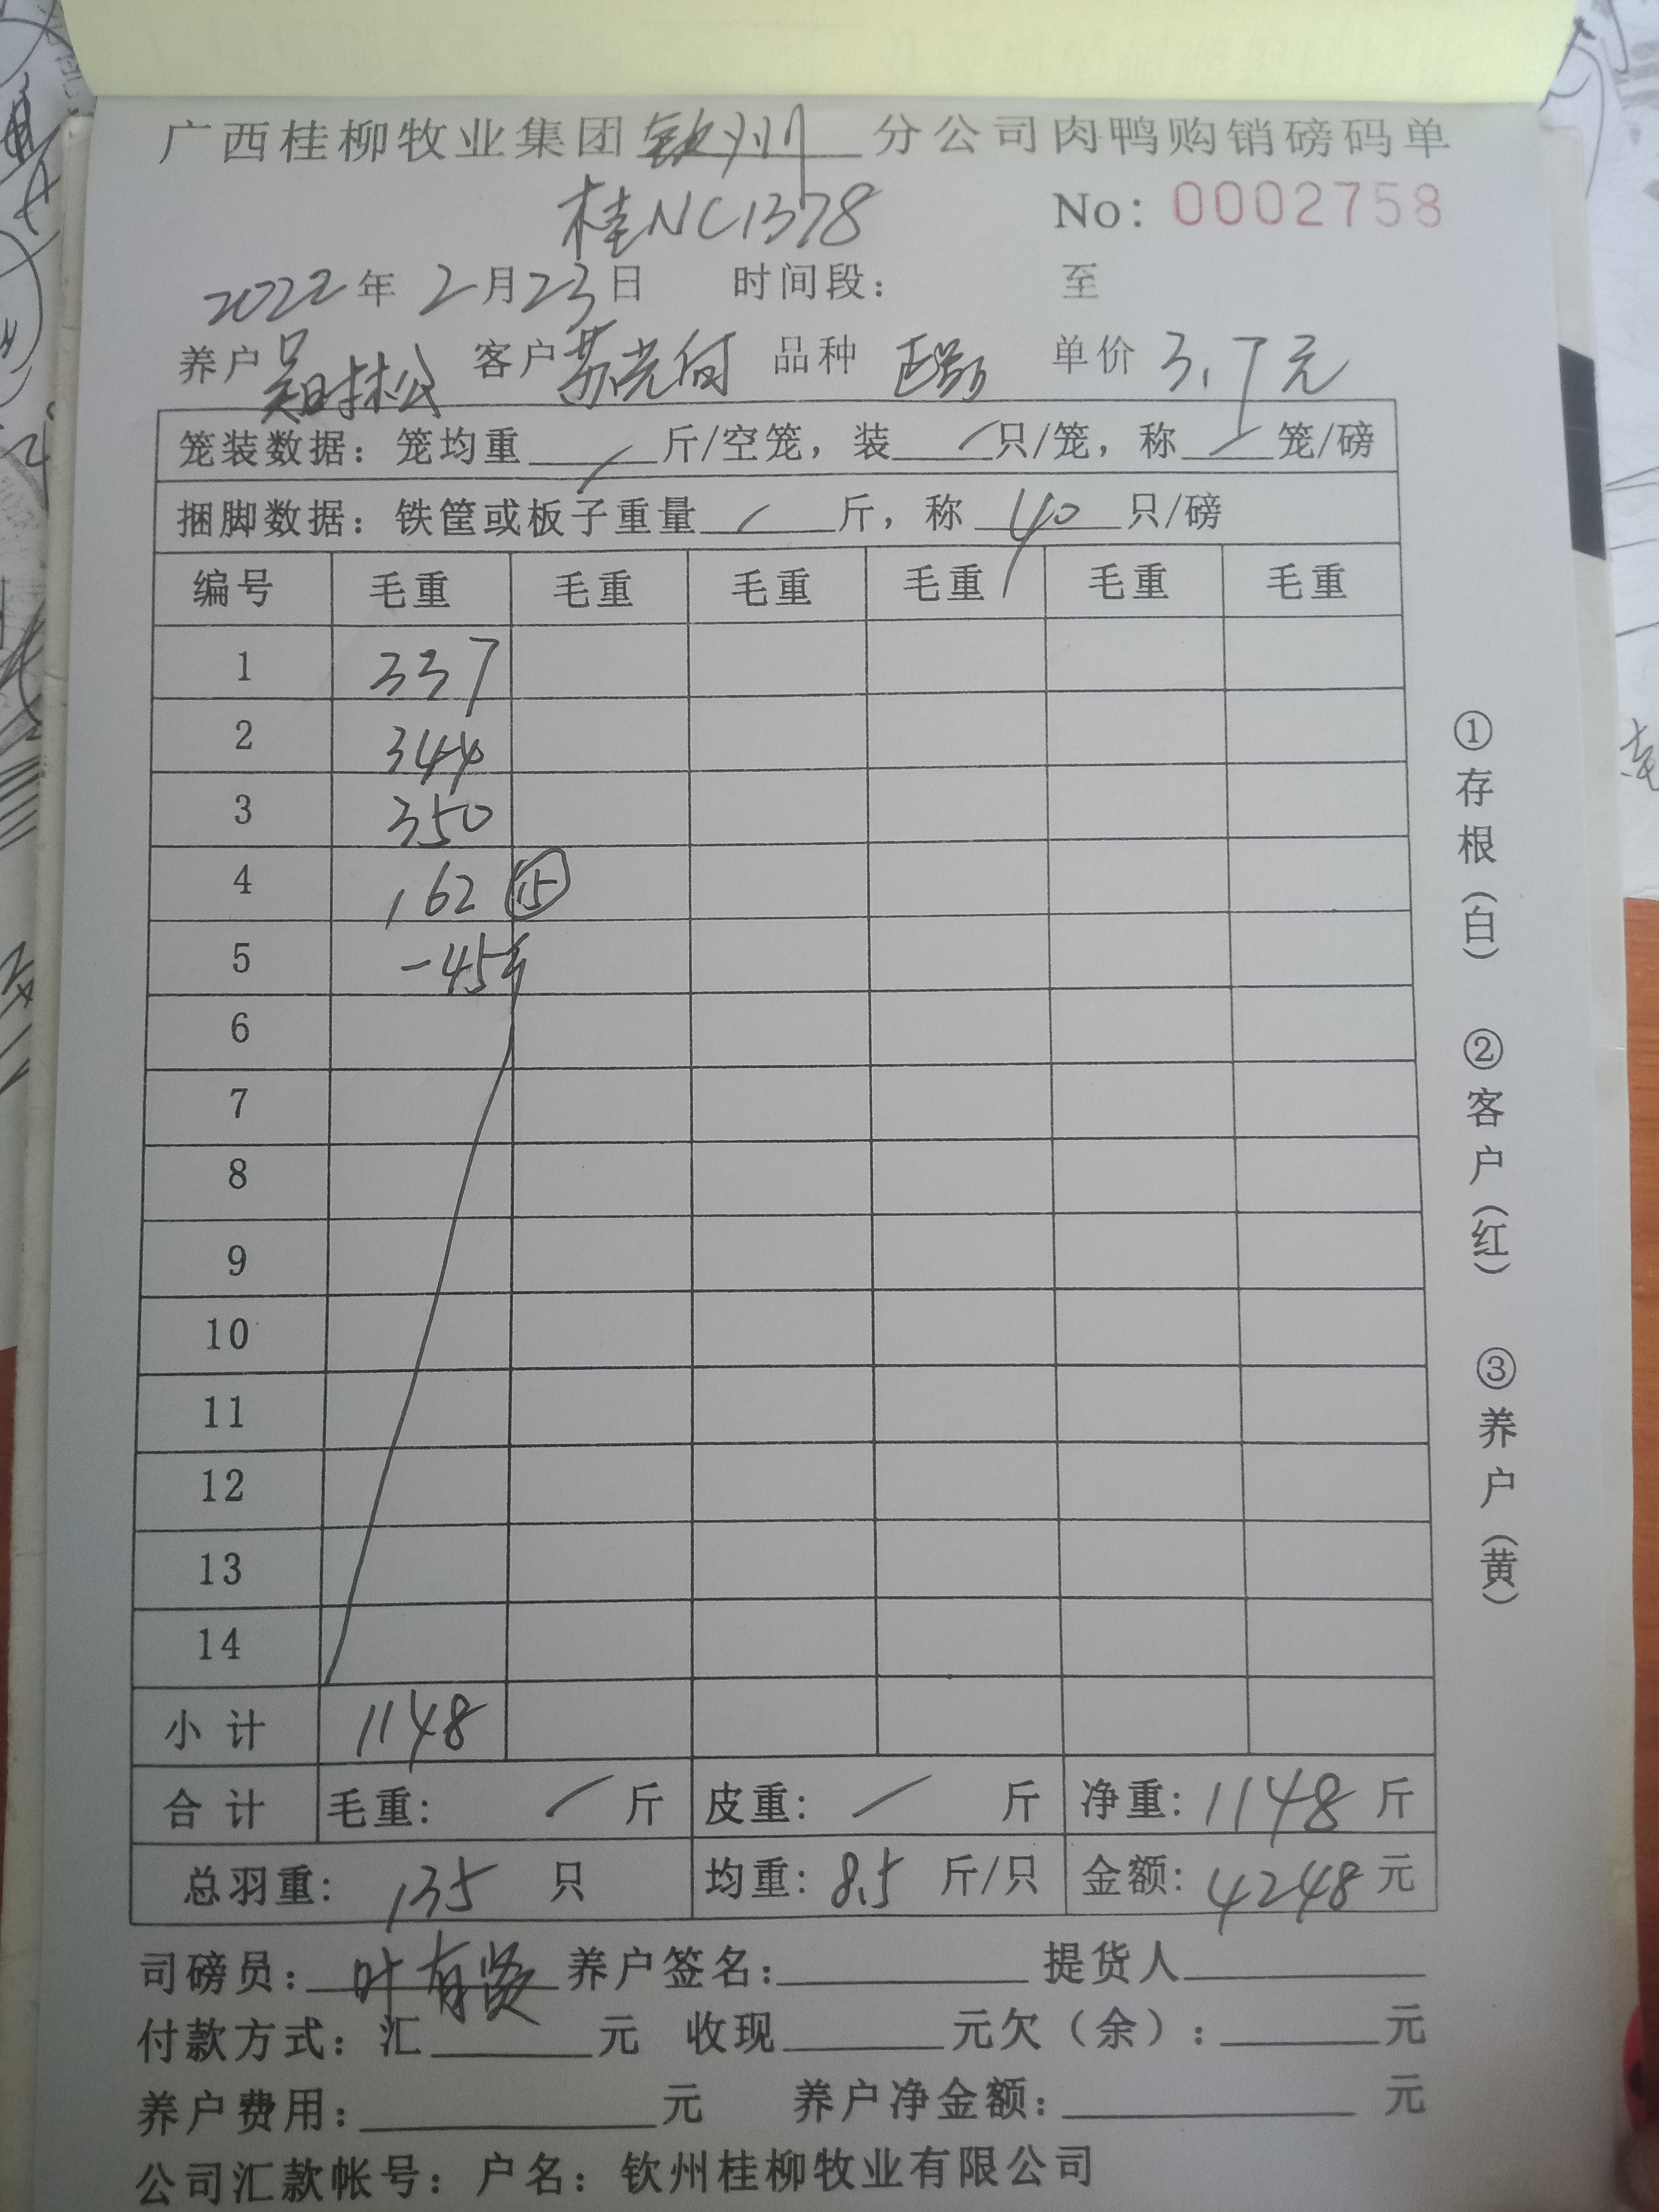 广西桂柳牧业集团钦州分公司肉鸭购销磅码单
桂NC1378 No: 0002758
2022年2月23日 时间段: 至
养户 吴时松 客户 苏光付 品种 单价 3.7元
笼装数据: 笼均重 / 斤/空笼, 装 / 只/笼, 称 / 笼/磅
捆脚数据: 铁筐或板子重量 / 斤, 称 40 只/磅
编号 毛重 毛重 毛重 毛重 毛重 毛重
1 337
2 344
3 350
4 162 ⑮
5 -45
6
7
8
9
10
11
12
13
14
小计 1148
合计 毛重: / 斤 皮重: / 斤 净重: 1148 斤
总羽重: 135 只 均重: 8.5 斤/只 金额: 4248 元
司磅员: 叶有贤 养户签名: 提货人
付款方式: 汇 元 收现 元欠(余): 元
养户费用: 元 养户净金额: 元
公司汇款帐号: 户名: 钦州桂柳牧业有限公司
①存根(白) ②客户(红) ③养户(黄)